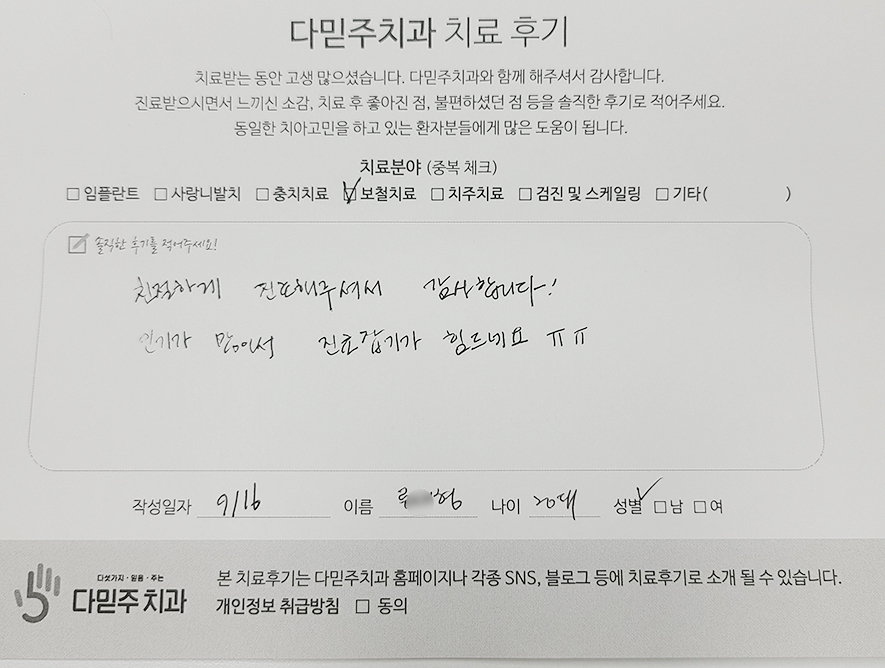 다믿주치과 치료 후기
치료받는 동안 고생 많으셨습니다. 다믿주치과와 함께 해주셔서 감사합니다.
진료받으시면서 느끼신 소감, 치료 후 좋아진 점, 불편하셨던 점 등을 솔직한 후기로 적어주세요.
동일한 치아고민을 하고 있는 환자분들에게 많은 도움이 됩니다.
치료분야 (중복 체크)
□ 임플란트 □ 사랑니발치 □ 충치치료 ☑ 보철치료 □ 치주치료 □ 검진 및 스케일링 □ 기타( )
솔직한 후기를 적어주세요!
친절하게 진료해주셔서 감사합니다!
인기가 많아서 진료잡기가 힘드네요 ㅠㅠ
작성일자 9/16 이름 나이 20대 성별 □남 □여
다섯가지·믿음·주는
다믿주치과
본 치료후기는 다믿주치과 홈페이지나 각종 SNS, 블로그 등에 치료후기로 소개 될 수 있습니다.
개인정보 취급방침 □ 동의